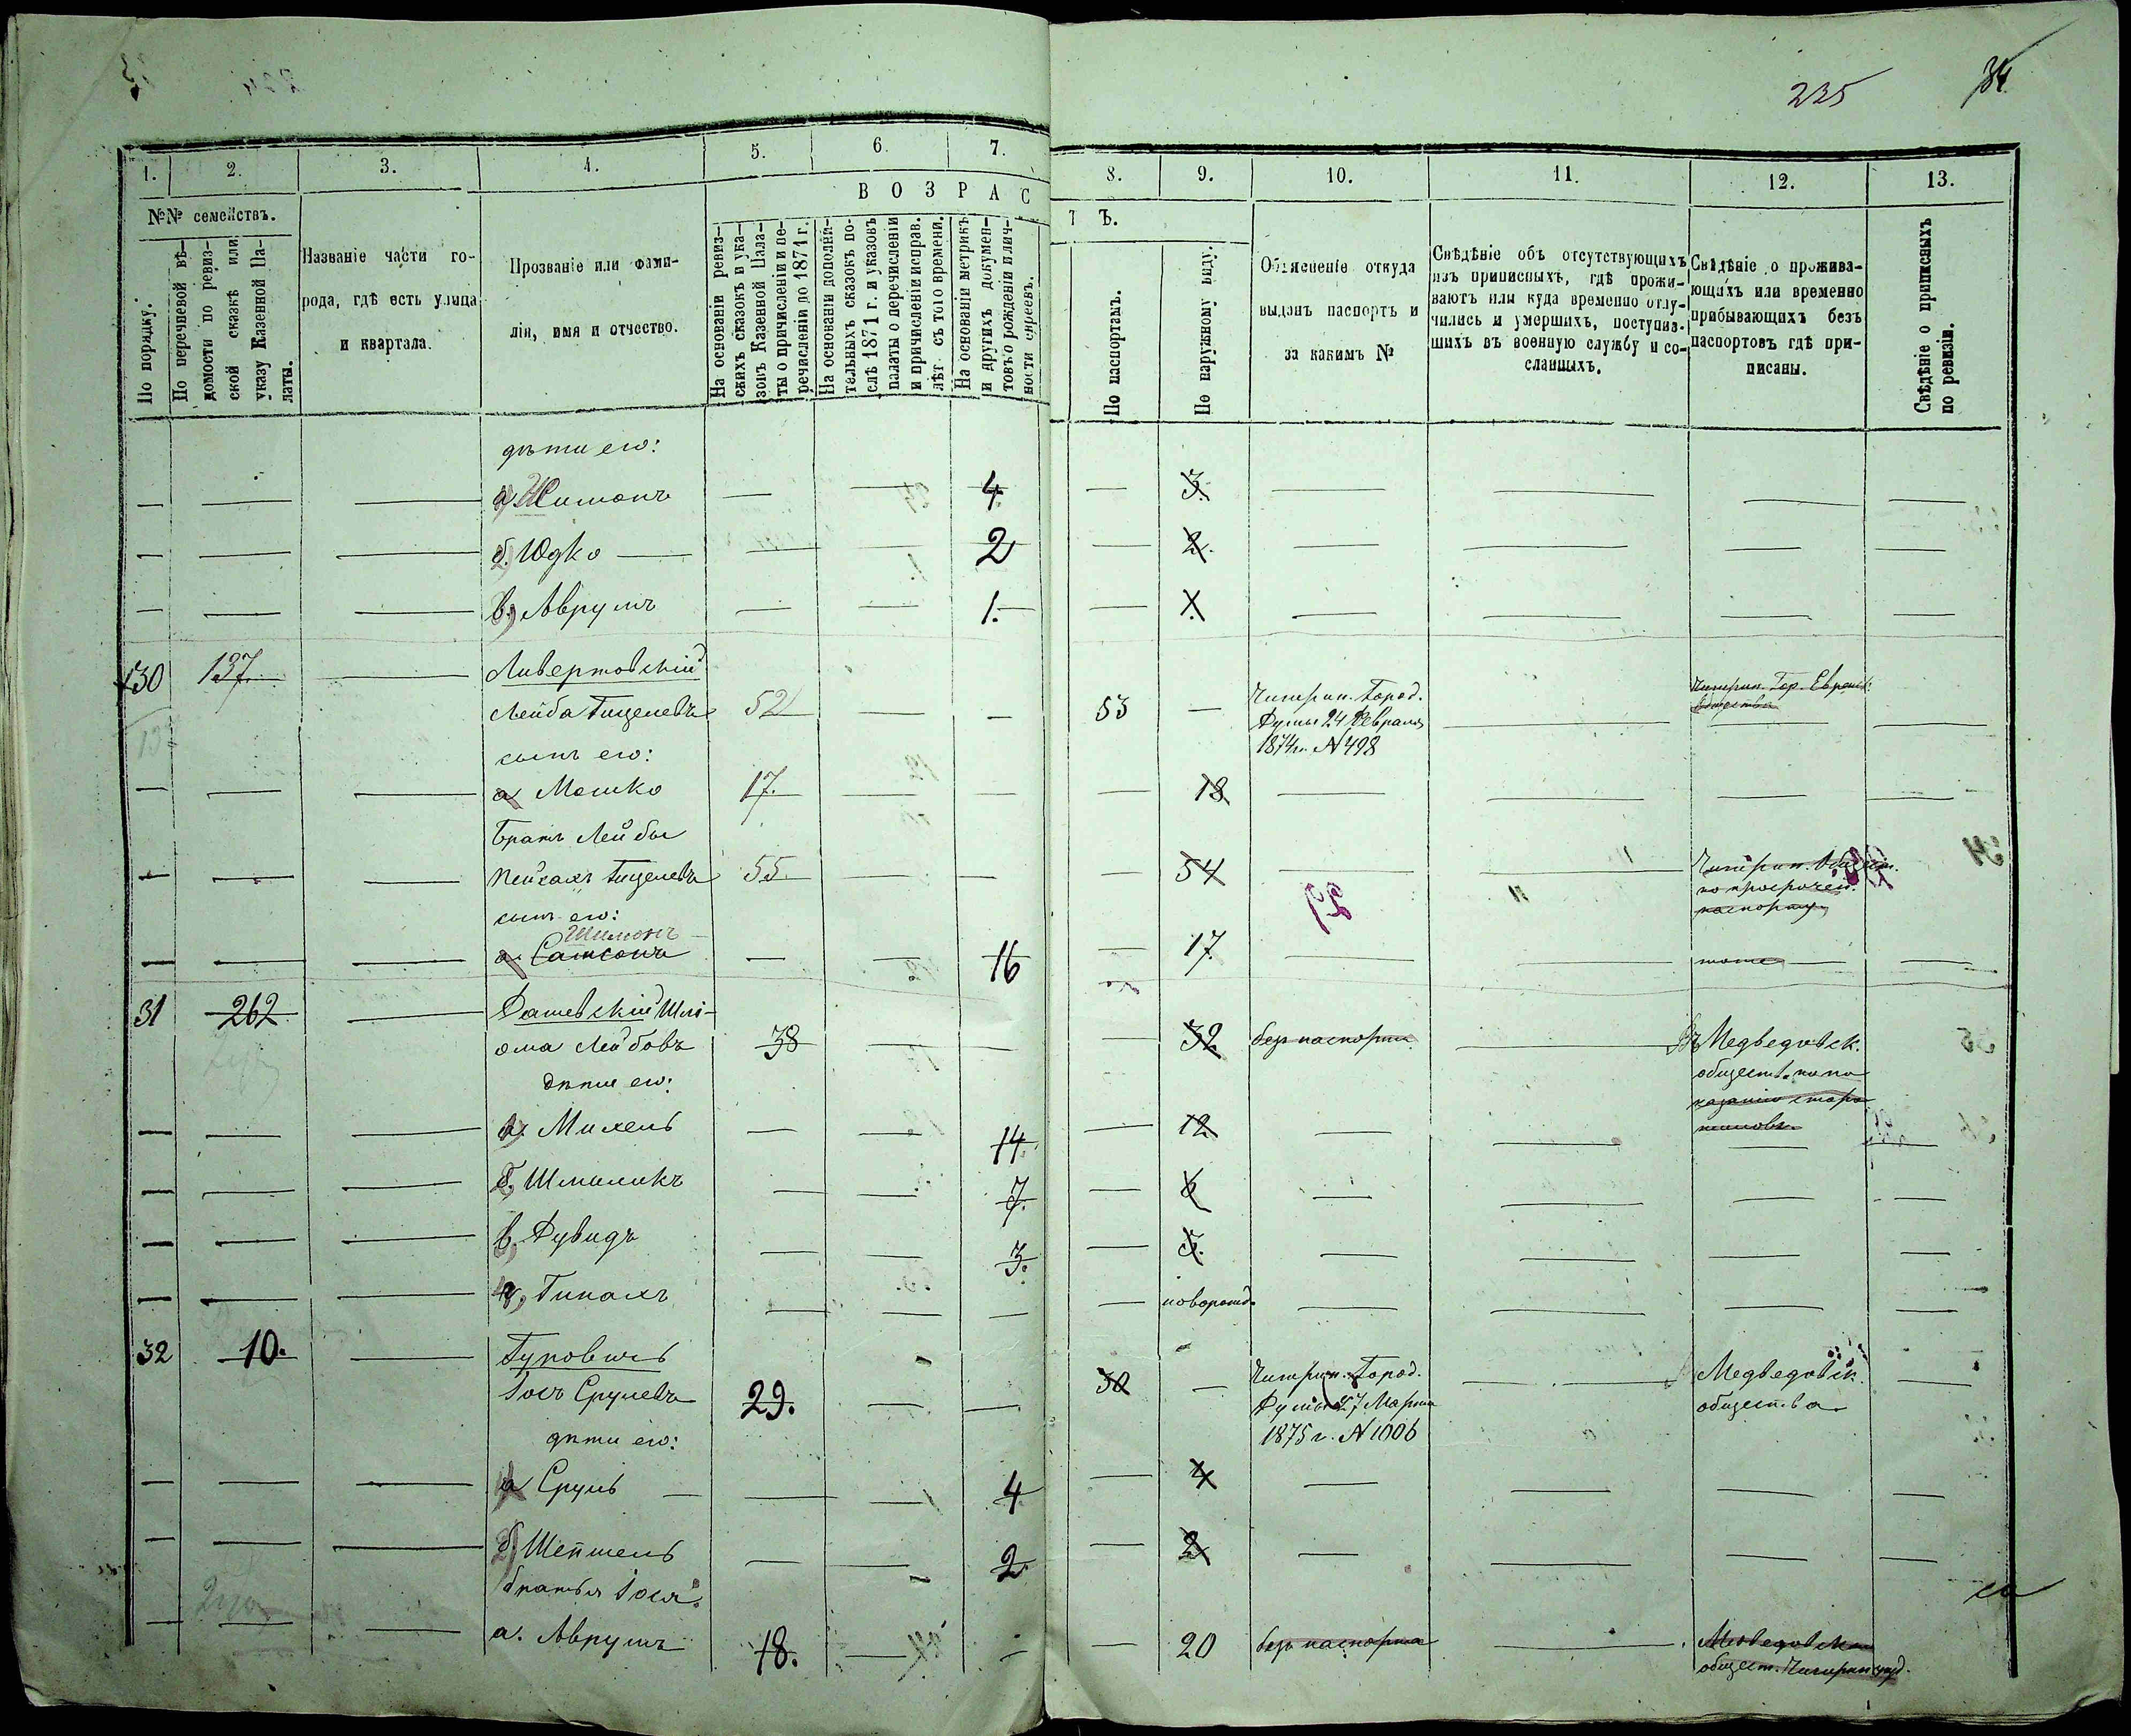 225
34
1.
2.
3.
4.
5.
6.
7.
8.
9.
10.
11.
12.
13.
№№ семействъ.
По порядку.
По перечневой вѣ-
домости по ревиз-
ской сказкѣ или
указу Казенной Па-
латы.
Названіе части го-
рода, гдѣ есть улица
и квартала.
Прозваніе или фами-
лія, имя и отчество.
ВОЗРАС
Т Ъ.
На основаніи ревиз-
скихъ сказокъ и ука-
зовъ Казенной Пала-
ты о причисленіи и пе-
речисленіи до 1871 г.
На основаніи дополни-
тельныхъ сказокъ по-
слѣ 1871 г. и указовъ
палаты о перечисленіи
и причисленіи исправ.
лѣт. съ того времени.
На основаніи метрикъ
и другихъ докумен-
товъ о рожденіи и лич-
ности евреевъ.
По паспортамъ.
По наружному виду.
Объясненіе откуда
выданъ паспортъ и
за какимъ №
Свѣдѣніе объ отсутствующихъ
изъ приписныхъ, гдѣ прожи-
ваютъ или куда временно отлу-
чились и умершихъ, поступив-
шихъ въ военную службу и со-
сланныхъ.
Свѣдѣніе о прожива-
ющихъ или временно
прибывающихъ безъ
паспортовъ гдѣ при-
писаны.
Свѣдѣніе о приписныхъ
по ревизіи.
дѣти его:
4. 3.
б. Юдко 2 2.
в. Аврумъ 1.
130 137. Ливертовскій
Лейба Гицелевъ 52 53 Чигирин. Город.
Думы 24 Февраля
1874 г. №498
Чигирин. Гор. Еврейск.
сынъ его:
а Мошко 17. 18
Братъ Лейбы
Пейсахъ Гицелевъ 55. 54 Чигирин. Общест.
по просрочен.
паспорту
сынъ его:
Шимонъ
а. Самсонъ 16 17. тоже
31 262 Дашевскій Шлі-
ома Лейбовъ 38 32 безъ паспорта Въ Медведовск.
обществ. по по
казанію старо
дѣти его:
а. Михель 14. 12
б. Шмиликъ 7. 6
в. Дувидъ 3. 5.
Гипахъ поворожд.
32 10. Гуровичъ
Іось Срулевъ 29. 30 Чигирин. Город.
Думы 27 Марта
1875 г. №1006
Медведовск.
общества
дѣти его:
а Сруль 4 4
б. Шепшель 2 2
братья Іося:
а. Аврумъ 18. 20 безъ паспорта
общест. Чигирин уѣзд.